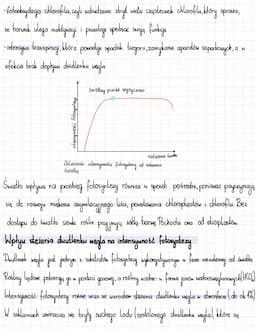 -fotooksydacja chlorofilu, czyli utlenienie zbyt wielu cząsteczek chlorofilu, który sprawia,
że barwnik ulega inaktywacji i przestaje spełniać swoją funkcję
-intensywna transpiracja, która powoduje spadek turgoru, zamykanie aparatów szparkowych, a w
efekcie brak dopływu dwutlenku węgla
świetlny punkt wysycenia
intensywność fotosyntezy
natężenie światła
Zależność intensywności fotosyntezy od natężenia
światła
Światło wpływa na przebieg fotosyntezy również w sposób pośredni, ponieważ przyczyniają
się do rozwoju miękiszu asymilacyjnego liści, powstawania chloroplastów i chlorofilu. Bez
dostępu do światła siewki roślin przyjmują żółtą barwę. Pochodzi ona od etioplastów.
Wpływ stężenia dwutlenku węgla na intensywność fotosyntezy
Dwutlenek węgla jest jednym z substratów fotosyntezy wykorzystywanym w fazie niezależnej od światła.
Rośliny lądowe pobierają go w postaci gazowej, a rośliny wodne - w formie jonów wodorowęglanowych
Intensywność fotosyntezy rośnie wraz ze wzrostem stężenia dwutlenku węgla w atmosferze (do ok
W szklarniach umieszcza się bryły suchego lodu (zestalonego dwutlenku węgla), które są